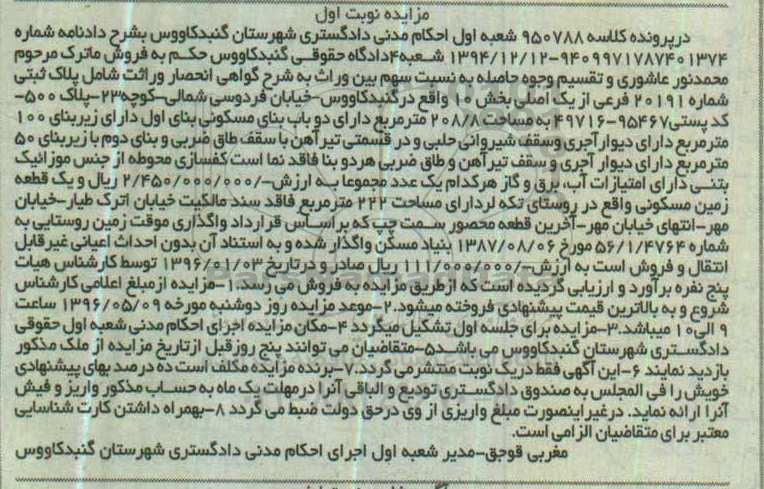 مزایده نوبت اول
درپرونده کلاسه ۹۵۰۷۸۸ شعبه اول احکام مدنی دادگستری شهرستان گنبدکاووس بشرح دادنامه شماره
۹۴۰۹۹۷۱۷۸۷۴۰۱۳۷۴-۱۳۹۴/۱۲/۱۲ شعبه۴دادگاه حقوقی گنبدکاووس حکم به فروش ماترک مرحوم
محمدنور عاشوری و تقسیم وجوه حاصله به نسبت سهم بین وراث به شرح گواهی انحصار وراثت شامل پلاک ثبتی
شماره ۲۰۱۹۱ فرعی از یک اصلی بخش ۱۰ واقع درگنبدکاووس-خیابان فردوسی شمالی-کوچه۲۳-پلاک ۵۰۰-
کد پستی۹۵۴۶۷-۴۹۷۱۶ به مساحت ۲۰۸/۸ مترمربع دارای دو باب بنای مسکونی بنای اول دارای زیربنای ۱۰۰
مترمربع دارای دیوارآجری وسقف شیروانی حلبی و در قسمتی تیرآهن با سقف طاق ضربی و بنای دوم با زیربنای ۵۰
مترمربع دارای دیوار آجری و سقف تیرآهن و طاق ضربی هردو بنا فاقد نما است کفسازی محوطه از جنس موزائیک
بتنی دارای امتیازات آب، برق و گاز هرکدام یک عدد مجموعا به ارزش-/۲/۴۵۰/۰۰۰/۰۰۰ ریال و یک قطعه
زمین مسکونی واقع در روستای تکه لردارای مساحت ۲۲۲ مترمربع فاقد سند مالکیت خیابان اترک طیار-خیابان
مهر-انتهای خیابان مهر-آخرین قطعه محصور سمت چپ که براساس قرارداد واگذاری موقت زمین روستایی به
شماره ۵۶/۱/۴۷۶۴ مورخ ۱۳۸۷/۰۸/۰۶ بنیاد مسکن واگذار شده و به استناد آن بدون احداث اعیانی غیرقابل
انتقال و فروش است به ارزش-/۱۱۱/۰۰۰/۰۰۰ ریال صادر و درتاریخ ۱۳۹۶/۰۱/۰۳ توسط کارشناس هیات
پنج نفره برآورد و ارزیابی گردیده است که ازطریق مزایده به فروش می رسد. ۱-مزایده ازمبلغ اعلامی کارشناس
شروع و به بالاترین قیمت پیشنهادی فروخته میشود.۲-موعد مزایده روز دوشنبه مورخه ۱۳۹۶/۰۵/۰۹ ساعت
۹ الی۱۰ میباشد.۳-مزایده برای جلسه اول تشکیل میگردد ۴-مکان مزایده اجرای احکام مدنی شعبه اول حقوقی
دادگستری شهرستان گنبدکاووس می باشد۵-متقاضیان می توانند پنج روزقبل ازتاریخ مزایده از ملک مذکور
بازدید نمایند ۶-این آگهی فقط دریک نوبت منتشرمی گردد.۷-برنده مزایده مکلف است ده درصد بهای پیشنهادی
خویش را فی المجلس به صندوق دادگستری تودیع و الباقی آنرا درمهلت یک ماه به حساب مذکور واریز و فیش
آنرا ارائه نماید. درغیراینصورت مبلغ واریزی از وی درحق دولت ضبط می گردد ۸-بهمراه داشتن کارت شناسایی
معتبر برای متقاضیان الزامی است.
مغربی قوجق-مدیر شعبه اول اجرای احکام مدنی دادگستری شهرستان گنبدکاووس